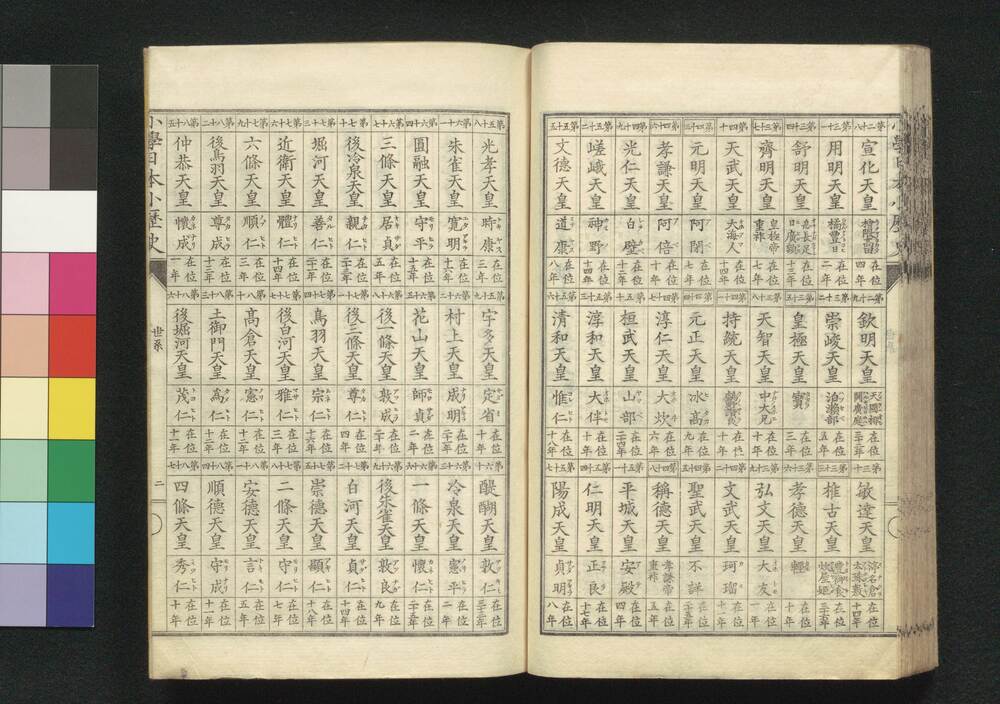 小學日本小歷史
第二十八 宣化天皇 檜隈高田 在位四年
第二十九 欽明天皇 天國排開廣庭 在位三十二年
第三十 敏達天皇 渟名倉太珠敷 在位十四年
第三十一 用明天皇 橘豐日 在位二年
第三十二 崇峻天皇 泊瀨部 在位五年
第三十三 推古天皇 豐御食炊屋姬 在位三十六年
第三十四 舒明天皇 息長足日廣額 在位十三年
第三十五 皇極天皇 寶 在位三年
第三十六 孝德天皇 輕 在位十年
第三十七 齊明天皇 皇極帝重祚 在位七年
第三十八 天智天皇 中大兄 在位十年
第三十九 弘文天皇 大友 在位一年
第四十 天武天皇 大海人 在位十四年
第四十一 持統天皇 在位十年
第四十二 文武天皇 珂瑠 在位十一年
第四十三 元明天皇 阿閇 在位七年
第四十四 元正天皇 氷高 在位九年
第四十五 聖武天皇 不詳 在位二十五年
第四十六 孝謙天皇 阿倍 在位十年
第四十七 淳仁天皇 大炊 在位六年
第四十八 稱德天皇 孝謙帝重祚 在位五年
第四十九 光仁天皇 白壁 在位十二年
第五十 桓武天皇 山部 在位二十四年
第五十一 平城天皇 安殿 在位四年
第五十二 嵯峨天皇 神野 在位十四年
第五十三 淳和天皇 大伴 在位十年
第五十四 仁明天皇 正良 在位十七年
第五十五 文德天皇 道康 在位八年
第五十六 清和天皇 惟仁 在位十八年
第五十七 陽成天皇 貞明 在位八年
第五十八 光孝天皇 時康 在位三年
第五十九 宇多天皇 定省 在位十年
第六十 醍醐天皇 敦仁 在位三十三年
第六十一 朱雀天皇 寬明 在位十六年
第六十二 村上天皇 成明 在位二十一年
第六十三 冷泉天皇 憲平 在位二年
第六十四 圓融天皇 守平 在位十五年
第六十五 花山天皇 師貞 在位二年
第六十六 一條天皇 懷仁 在位二十五年
第六十七 三條天皇 居貞 在位五年
第六十八 後一條天皇 敦成 在位二十年
第六十九 後朱雀天皇 敦良 在位九年
第七十 後冷泉天皇 親仁 在位二十三年
第七十一 後三條天皇 尊仁 在位四年
第七十二 白河天皇 貞仁 在位十四年
第七十三 堀河天皇 善仁 在位二十一年
第七十四 鳥羽天皇 宗仁 在位十六年
第七十五 崇德天皇 顯仁 在位十八年
第七十六 近衛天皇 體仁 在位十四年
第七十七 後白河天皇 雅仁 在位三年
第七十八 二條天皇 守仁 在位七年
第七十九 六條天皇 順仁 在位三年
第八十 高倉天皇 憲仁 在位十二年
第八十一 安德天皇 言仁 在位五年
第八十二 後鳥羽天皇 尊成 在位十三年
第八十三 土御門天皇 為仁 在位十二年
第八十四 順德天皇 守成 在位十一年
第八十五 仲恭天皇 懷成 在位一年
第八十六 後堀河天皇 茂仁 在位十一年
第八十七 四條天皇 秀仁 在位十年
小學日本小歷史
世系
二